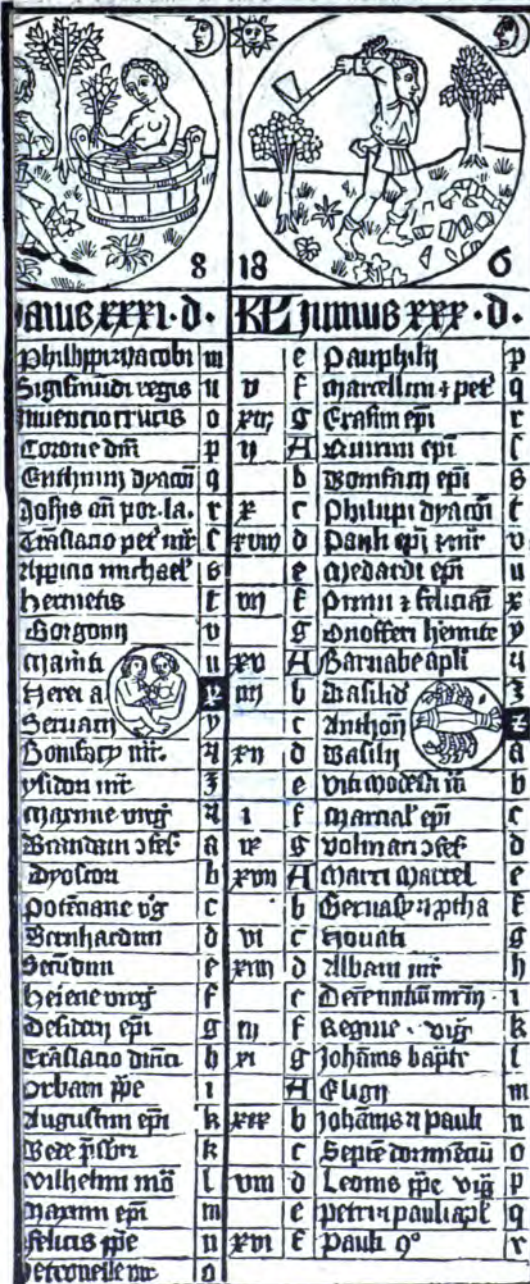 8 18 6
Maius xxxi · d · KL Junius xxx · d ·
Philippi ⁊ Jacobi m e Pamphilij p
Sigismūdi regis n v f Marcellini ⁊ pet' q
Inuencio crucis o xiij g Erasmi ep̄i r
Corone dn̄i p ij A Quirini ep̄i ſ
q b Bonifacij ep̄i s
Joh̄is an̄ por. la. r x c Philippi dyaco᷑n t
Trāslacio pet' mr̄ ſ xviij d Pauli ep̄i ⁊ mr̄ v
Appicio michael' s e Medardi ep̄i u
Hermetis t vij f Primi ⁊ feliciani x
Gorgonij v g Onofferi hēmite y
u xv A Barnabe apl̄i
Herei a iiij b Basilid'
Seruacij y c Anthoñ z
Bonifacij mr̄. xij d Basilij a
ysidori mr̄ e Viti Modesti b
Maxime virḡ i f Marcial' ep̄i c
Brandani ↄfes' a ix g Volmari ↄfes' d
Dyoscori b xvij A Marci Marcel e
Potēciane v̄g c b Geruasij ⁊ ꝓtha f
Bernhardini d vi c Nouati g
Secūdini e xiiij d Albani mr̄ h
Helene virḡ f e i
Desiderij ep̄i g iij f Regine · viḡ k
Trāslacio dn̄ici h xi g Joha᷑nis bapt̄e l
Vrbani p̄pe i A Eligij m
Augustini ep̄i k xix b Joha᷑nis ⁊ Pauli n
Bede p̄sbri k c Septē dormēciū o
Wilhelmi l viij d Leonis p̄pe viḡ p
Maximi ep̄i m e Petri ⁊ pauli apl̄ q
Felicis p̄pe n xvi f Pauli 9° r
Petronelle o